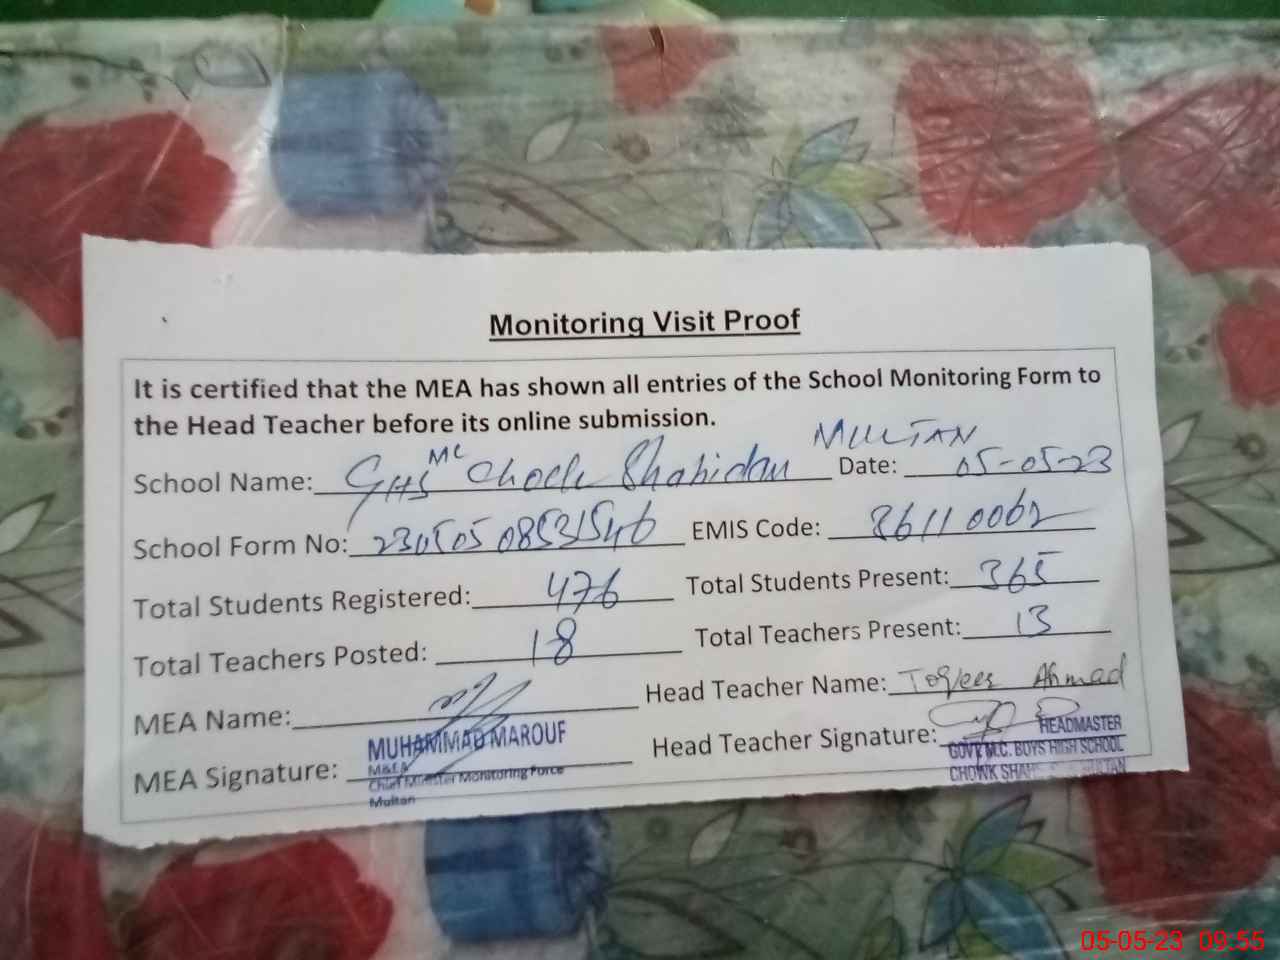 Monitoring Visit Proof
It is certified that the MEA has shown all entries of the School Monitoring Form to
the Head Teacher before its online submission.
School Name: GHS MC Chock Shahidan MULTAN Date: 05-05-23
School Form No: 230505 08531546 EMIS Code: 36110062
Total Students Registered: 476 Total Students Present: 365
Total Teachers Posted: 18 Total Teachers Present: 13
MEA Name: Head Teacher Name: Ahmad
MEA Signature: MUHAMMAD MAROUF Head Teacher Signature: HEADMASTER
M&EA GOVT M.C. BOYS HIGH SCHOOL
Chief Minister Monitoring Force CHOWK MULTAN
Multan
05-05-23 09:55